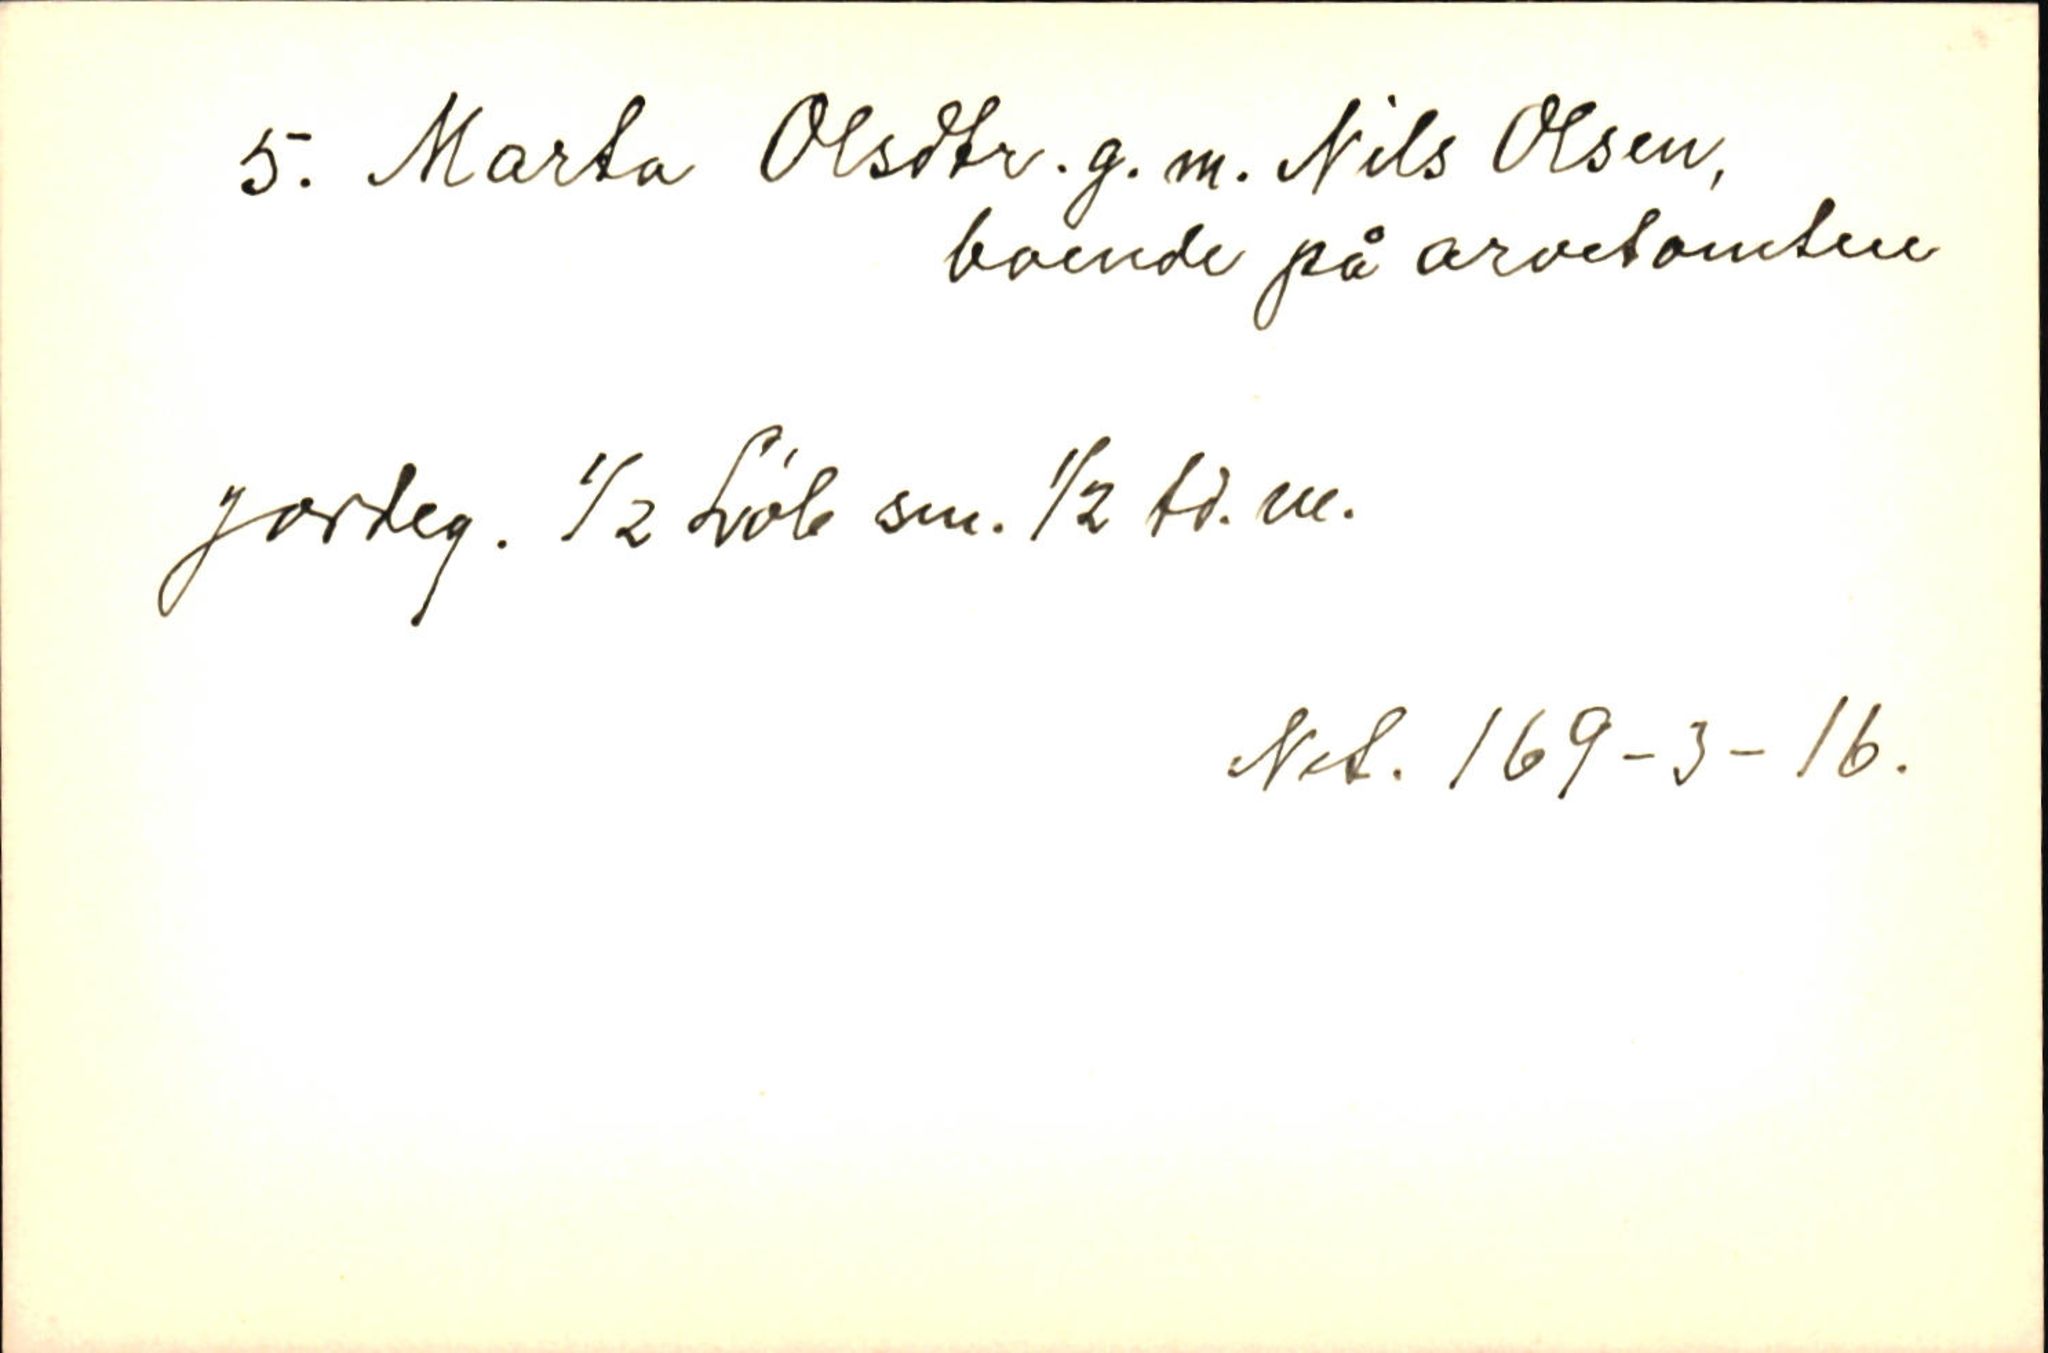 5. Marta Olsdtr. g. m. Nils Olsen,
boende på arvetomten
jordeg. 1/2 Löb sm. 1/2 td. m.
Net. 169-3-16.